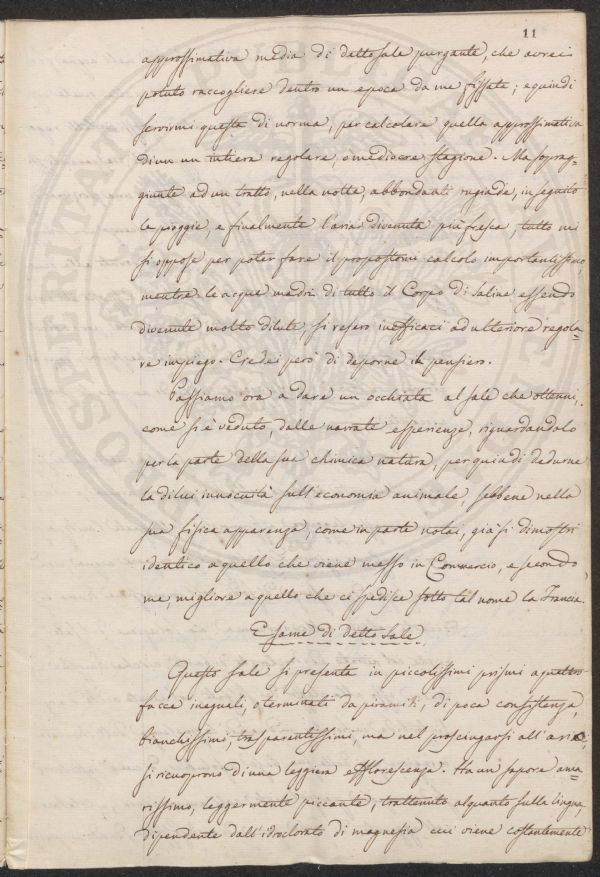 11
approssimativa media di detto sale purgante, che avrei
potuto raccogliere dentro un epoca da me fissata; e quindi
servirmi questa di norma, per calcolare quella approssimativa
di un intiera regolare, o mediocre stagione. Ma soprag=
giunte ad un tratto, nella notte, abbondanti rugiade, in seguito
le pioggie, e finalmente l'aria divenuta più fresca, tutto mi
si oppose per poter fare il propostomi calcolo importantissimo,
mentre le acque madri di tutto il Corpo di Saline essendo
divenute molto dilute, si resero inefficaci ad ulteriore regola=
re impiego. Credei però di deporne il pensiero.
Passiamo ora a dare un occhiata al sale che ottenni,
come si è veduto, dalle narrate esperienze, riguardandolo
per la parte della sua chimica natura, per quindi dedurne
la di lui innocuità sull'economia animale, sebbene nella
sua fisica apparenza, come in parte notai, già si dimostri
identico a quello che viene messo in Commercio, e secondo
me, migliore a quello che ci spedisce sotto tal nome la Francia.
Esame di detto Sale
Questo sale si presenta in piccolissimi prismi a quattro
facce ineguali, o terminati da piramidi, di poca consistenza,
bianchissimi, trasparentissimi, ma nel prosciugarsi all'aria,
si ricuoprono di una leggiera efflorescenza. Ha un sapore ama=
rissimo, leggermente piccante, trattenuto alquanto sulla lingua,
dipendente dall'idroclorato di magnesia cui viene costantemente